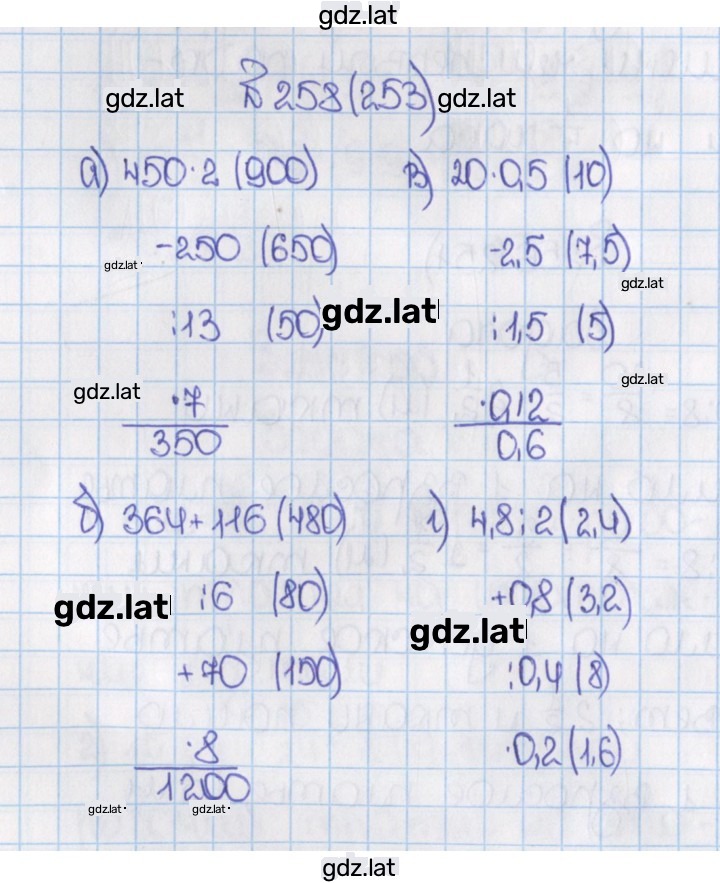 gdz.lat
№ 258 (253)
gdz.lat gdz.lat
а) 450·2 (900)
-250 (650)
gdz.lat
:13 (50)
gdz.lat
gdz.lat
·7
350
в) 20·0,5 (10)
-2,5 (7,5)
gdz.lat
:1,5 (5)
gdz.lat
·0,12
0,6
б) 364+116 (480)
:6 (80)
gdz.lat
+70 (150)
·8
1200
gdz.lat gdz.lat
г) 4,8:2 (2,4)
+0,8 (3,2)
gdz.lat
:0,4 (8)
·0,2 (1,6)
gdz.lat